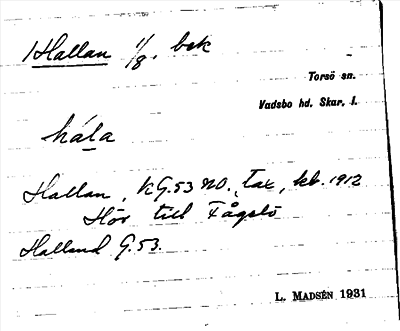 Hallan 1/8. bek
Torsö sn.
Vadsbo hd. Skar. l.
håla
Hallan, KG.53 NO., Tax, kb. 1912
Hör till Fågelö
Halland G.53.
L. MADSÉN 1931